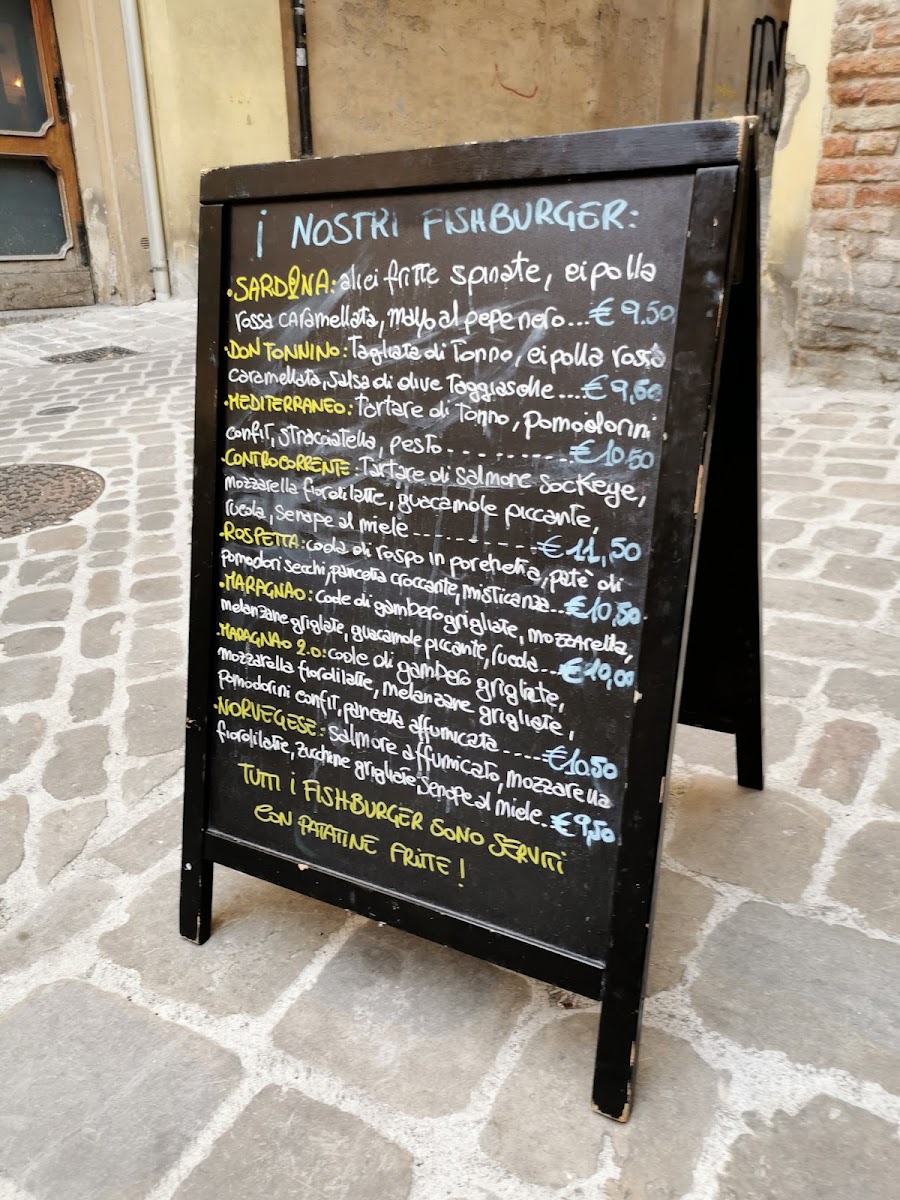 i NOSTRI FISHBURGER:
• SARDINA: alici fritte spinate, cipolla
rossa caramellata, mayo al pepe nero... € 9.50
• DON TONNINO: Tagliata di Tonno, cipolla rossa
caramellata, salsa di olive Taggiasche .... € 9,50
• MEDITERRANEO: Tartare di Tonno, pomodorini
confit, stracciatella, pesto . - - - - - - - - . € 10.50
• CONTROCORRENTE: Tartare di salmone sockeye,
mozzarella fiordilatte, guacamole piccante,
rucola, senape al miele - - - - - - - - - - - - € 11,50
• ROSPETTA: coda di rospo in porchetta, patè di
pomodori secchi, pancetta croccante, misticanza... € 10,50
• MARAGNAO: Code di gambero grigliate, mozzarella,
melanzane grigliate, guacamole piccante, rucola -- € 10,00
• MARAGNAO 2.0: code di gambero grigliate,
mozzarella fiordilatte, melanzane grigliate,
pomodorini confit, pancetta affumicata ---- € 10.50
• NORVEGESE: salmone affumicato, mozzarella
fiordilatte, zucchine grigliate, senape al miele.. € 9,50
TUTTI I FISHBURGER SONO SERVITI
CON PATATINE FRITTE!